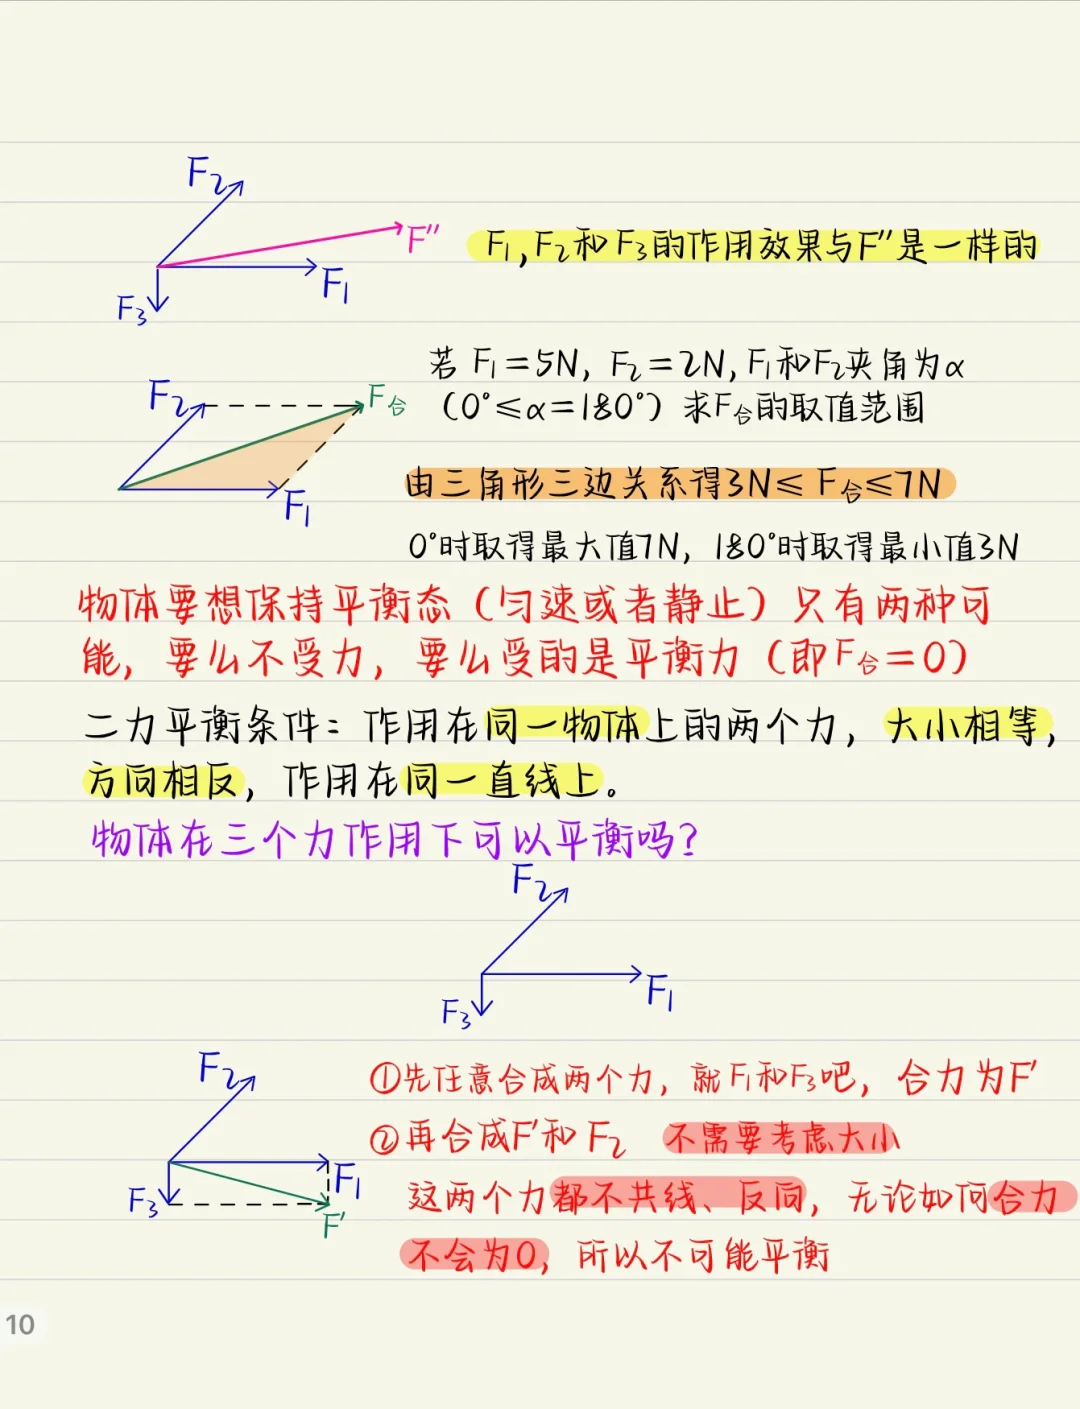 F₂
F″
F₁,F₂和F₃的作用效果与F″是一样的
F₁
F₃
若 F₁=5N, F₂=2N, F₁和F₂夹角为α
F₂
F合
(0°≤α=180°) 求F合的取值范围
F₁
由三角形三边关系得3N≤F合≤7N
0°时取得最大值7N, 180°时取得最小值3N
物体要想保持平衡态（匀速或者静止）只有两种可
能, 要么不受力, 要么受的是平衡力（即F合=0）
二力平衡条件: 作用在同一物体上的两个力, 大小相等,
方向相反, 作用在同一直线上。
物体在三个力作用下可以平衡吗?
F₂
F₁
F₃
F₂
①先任意合成两个力, 就F₁和F₃吧, 合力为F′
②再合成F′和F₂ 不需要考虑大小
F₁
F₃
F′
这两个力都不共线、反向, 无论如何合力
不会为0, 所以不可能平衡
10